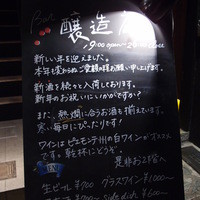 Bar
醸造
9:00 open
新しい年を迎えました。
本年も変わらぬご愛顧の程お願い申し上げます。
新酒も続々と入荷しております。
新年のお祝いにいかがですか?
また、熱燗に合うお酒も揃えています。
寒い毎日にぴったりです!
ワインはピエモンテ州の白ワインがオススメ
です。乾杯にどうぞ。
是非お2階へ
生ビール ¥700 グラスワイン ¥1000〜
¥900〜 side dish ¥600〜